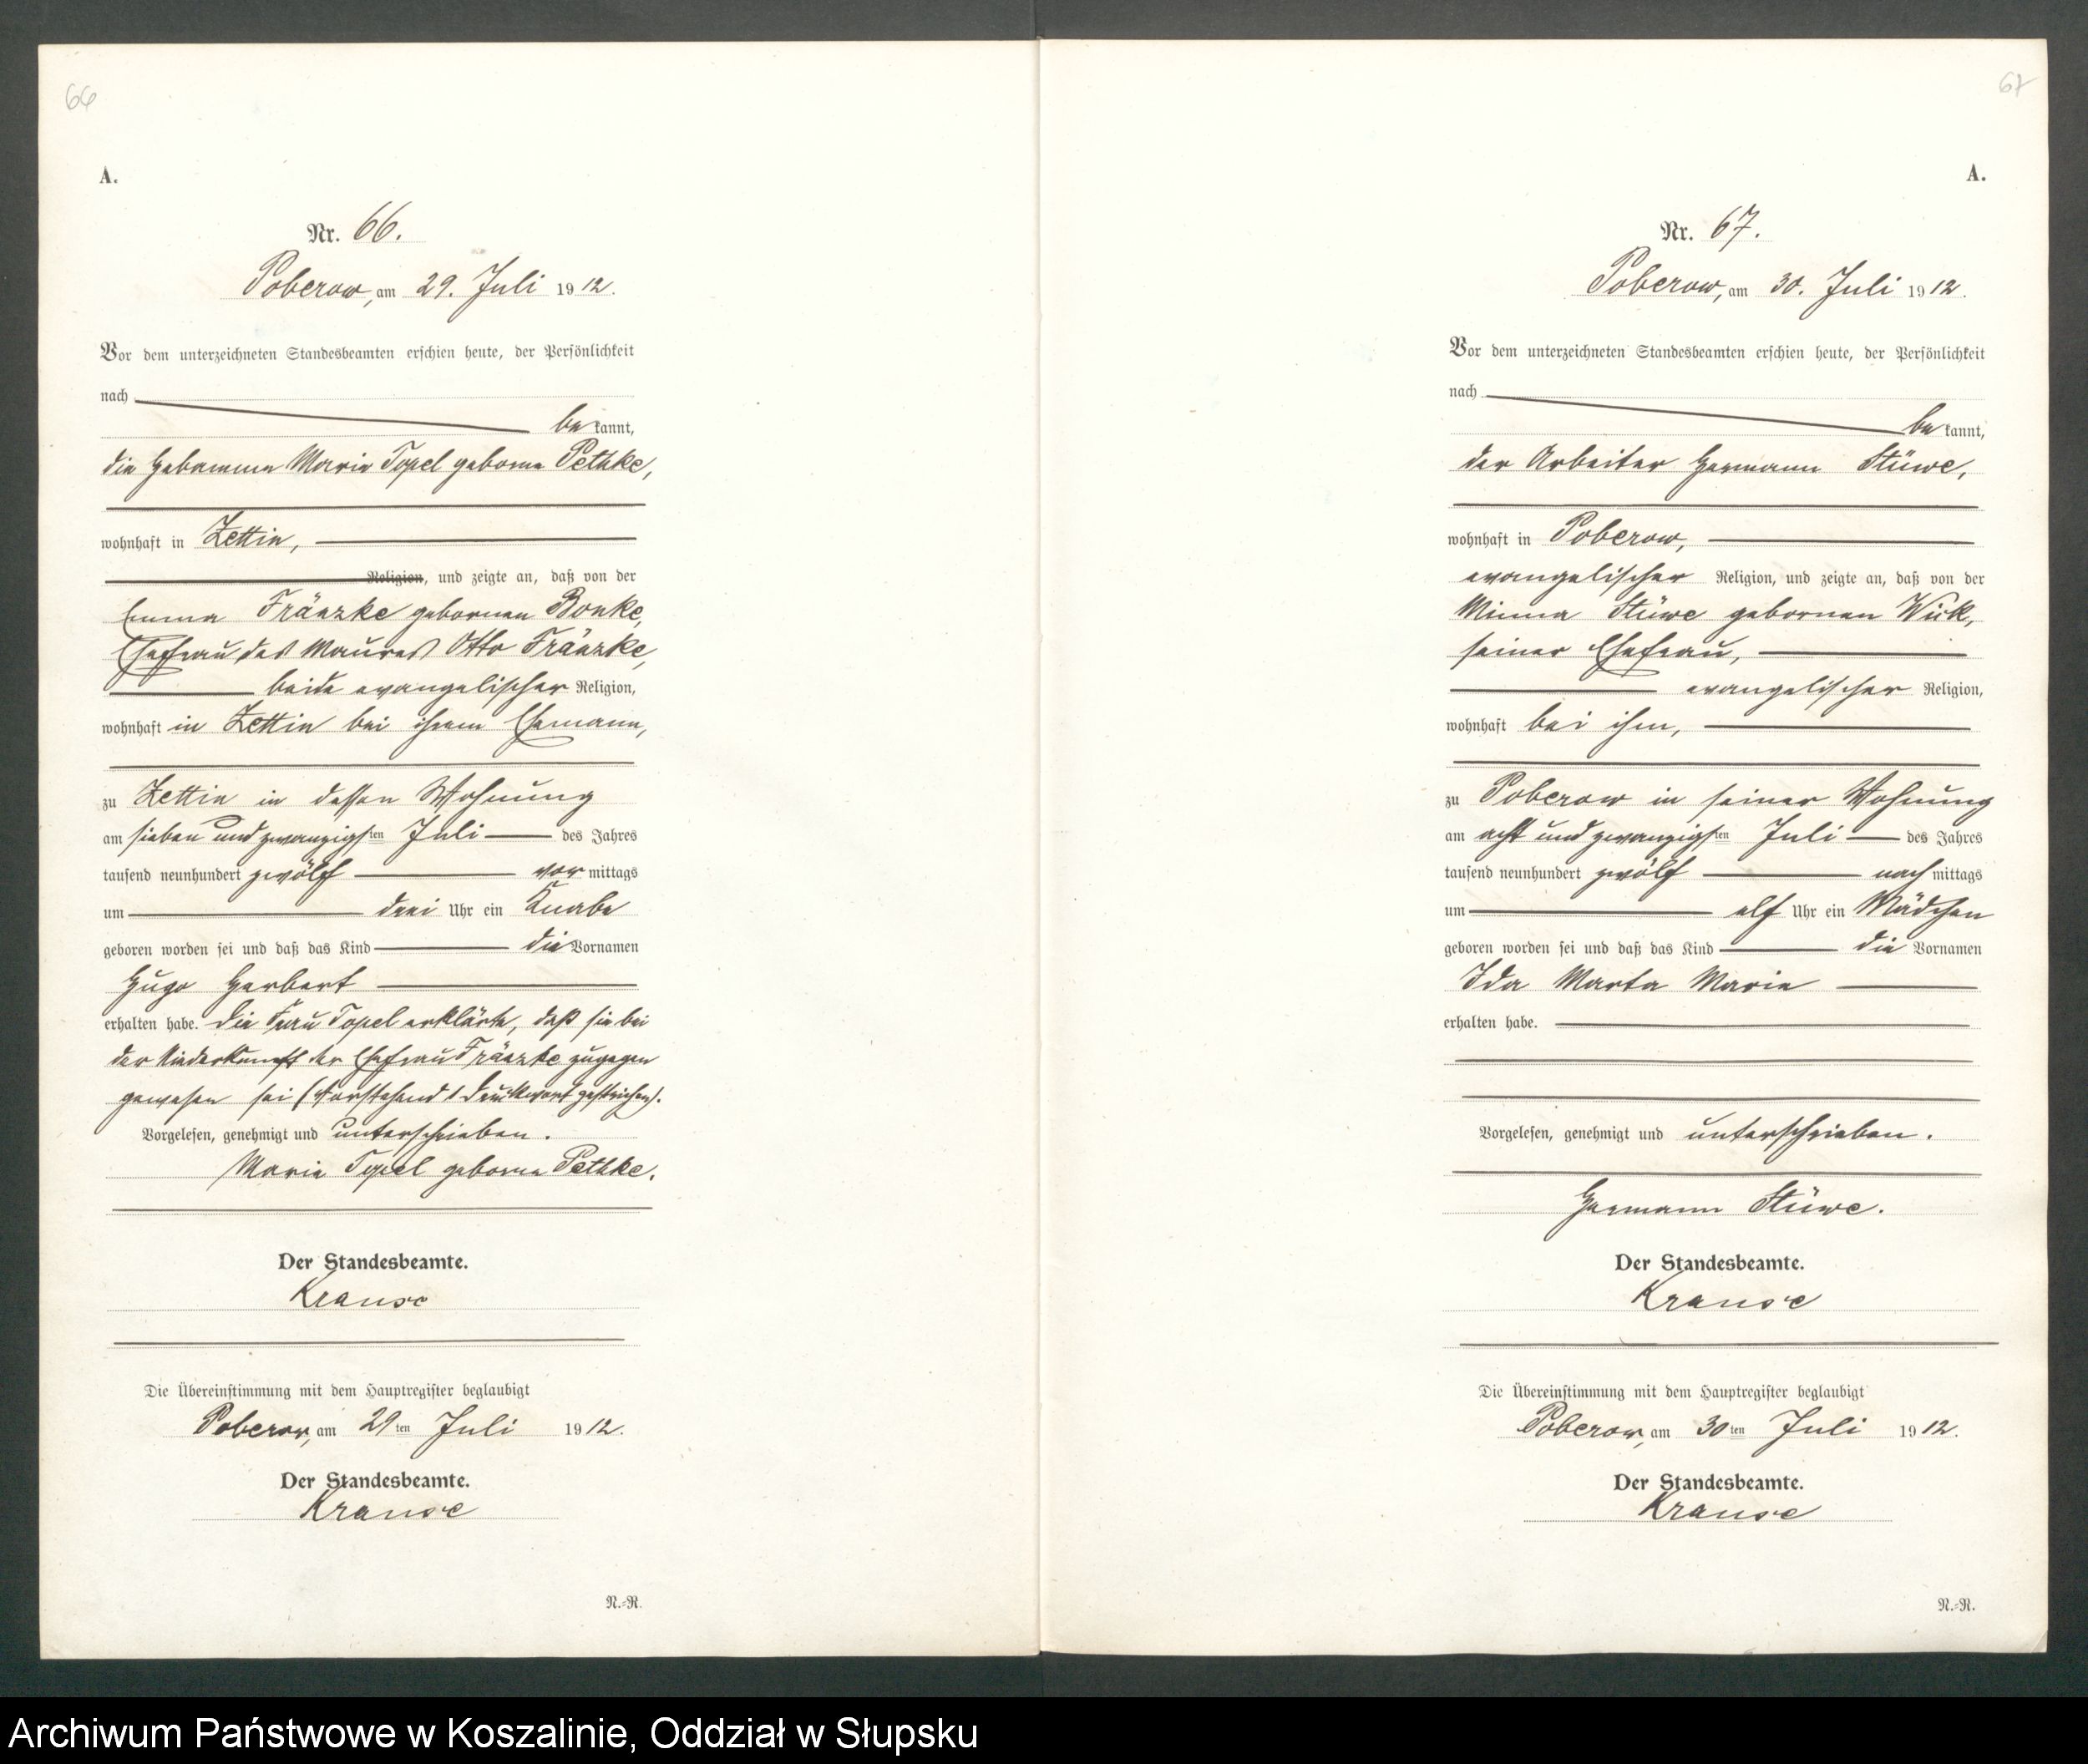 66
A.
Nr. 66.
Poberow, am 29. Juli 1912.
Vor dem unterzeichneten Standesbeamten erschien heute, der Persönlichkeit
nach
bekannt,
die Hebamme Marie Topel geborne Pethke,
wohnhaft in Zettin,
Religion, und zeigte an, daß von der
Emma Fränzke gebornen Bonke,
Ehefrau des Maurers Otto Fränzke,
beide evangelischer Religion,
wohnhaft in Zettin bei ihrem Ehemann,
zu Zettin in dessen Wohnung
am sieben und zwanzigsten Juli des Jahres
tausend neunhundert zwölf vormittags
um drei Uhr ein Knabe
geboren worden sei und daß das Kind die Vornamen
Hugo Herbert
erhalten habe. Die Frau Topel erklärte, daß sie bei
der Niederkunft der Ehefrau Fränzke zugegen
gewesen sei (Vorstehend 1 Druckwort gestrichen).
Vorgelesen, genehmigt und unterschrieben.
Marie Topel geborne Pethke.
Der Standesbeamte.
Krause
Die Übereinstimmung mit dem Hauptregister beglaubigt
Poberow, am 29ten Juli 1912.
Der Standesbeamte.
Krause
N.=R.
67
A.
Nr. 67.
Poberow, am 30. Juli 1912.
Vor dem unterzeichneten Standesbeamten erschien heute, der Persönlichkeit
nach
bekannt,
der Arbeiter Hermann Stüwe,
wohnhaft in Poberow,
evangelischer Religion, und zeigte an, daß von der
Minna Stüwe gebornen Wick,
seiner Ehefrau,
evangelischer Religion,
wohnhaft bei ihm,
zu Poberow in seiner Wohnung
am acht und zwanzigsten Juli des Jahres
tausend neunhundert zwölf nachmittags
um elf Uhr ein Mädchen
geboren worden sei und daß das Kind die Vornamen
Ida Marta Marie
erhalten habe.
Vorgelesen, genehmigt und unterschrieben.
Hermann Stüwe.
Der Standesbeamte.
Krause
Die Übereinstimmung mit dem Hauptregister beglaubigt
Poberow, am 30ten Juli 1912.
Der Standesbeamte.
Krause
N.=R.
Archiwum Państwowe w Koszalinie, Oddział w Słupsku